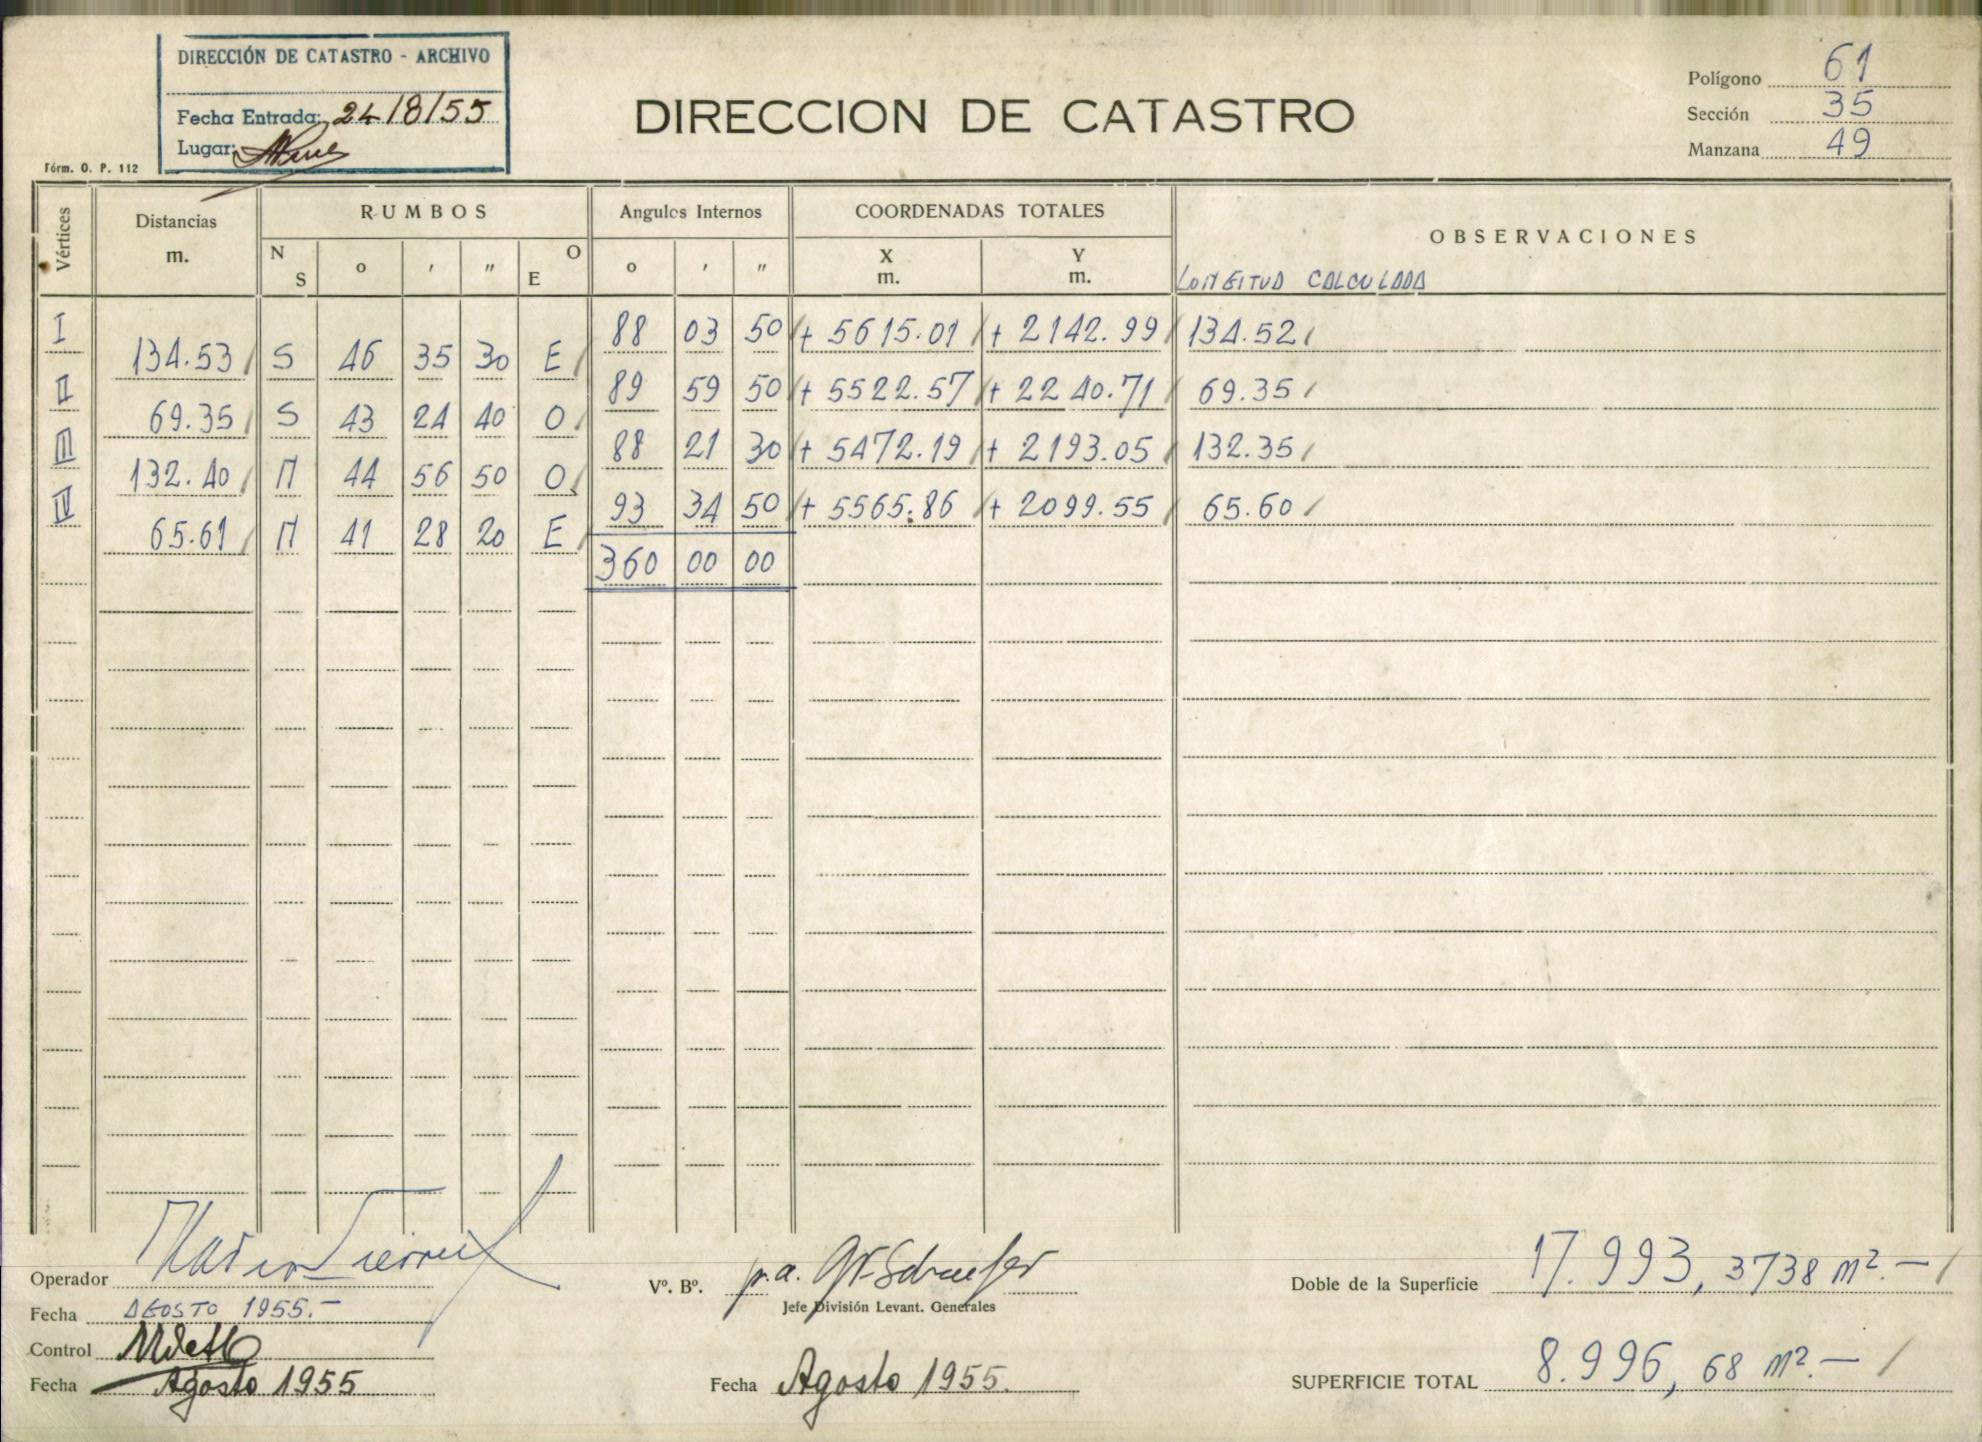 DIRECCIÓN DE CATASTRO - ARCHIVO
Fecha Entrada: 24/8/55
Lugar:
Fórm. O. P. 112
DIRECCION DE CATASTRO
Polígono 61
Sección 35
Manzana 49
Vértices Distancias m. RUMBOS Angulos Internos COORDENADAS TOTALES OBSERVACIONES
N S o ' " O E o ' " X m. Y m. LONGITUD CALCULADA
I 88 03 50 + 5615.01 + 2142.99 134.52
134.53 S 46 35 30 E
II 89 59 50 + 5522.57 + 2240.71 69.35
69.35 S 43 24 40 O
III 88 21 30 + 5472.19 + 2193.05 132.35
132.40 N 44 56 50 O
IV 93 34 50 + 5565.86 + 2099.55 65.60
65.61 N 41 28 20 E
360 00 00
Operador
Fecha AGOSTO 1955.-
Control
Fecha Agosto 1955
Vº. Bº. p.a.
Jefe División Levant. Generales
Fecha Agosto 1955.
Doble de la Superficie 17.993,3738 m².-
SUPERFICIE TOTAL 8.996,68 m².-